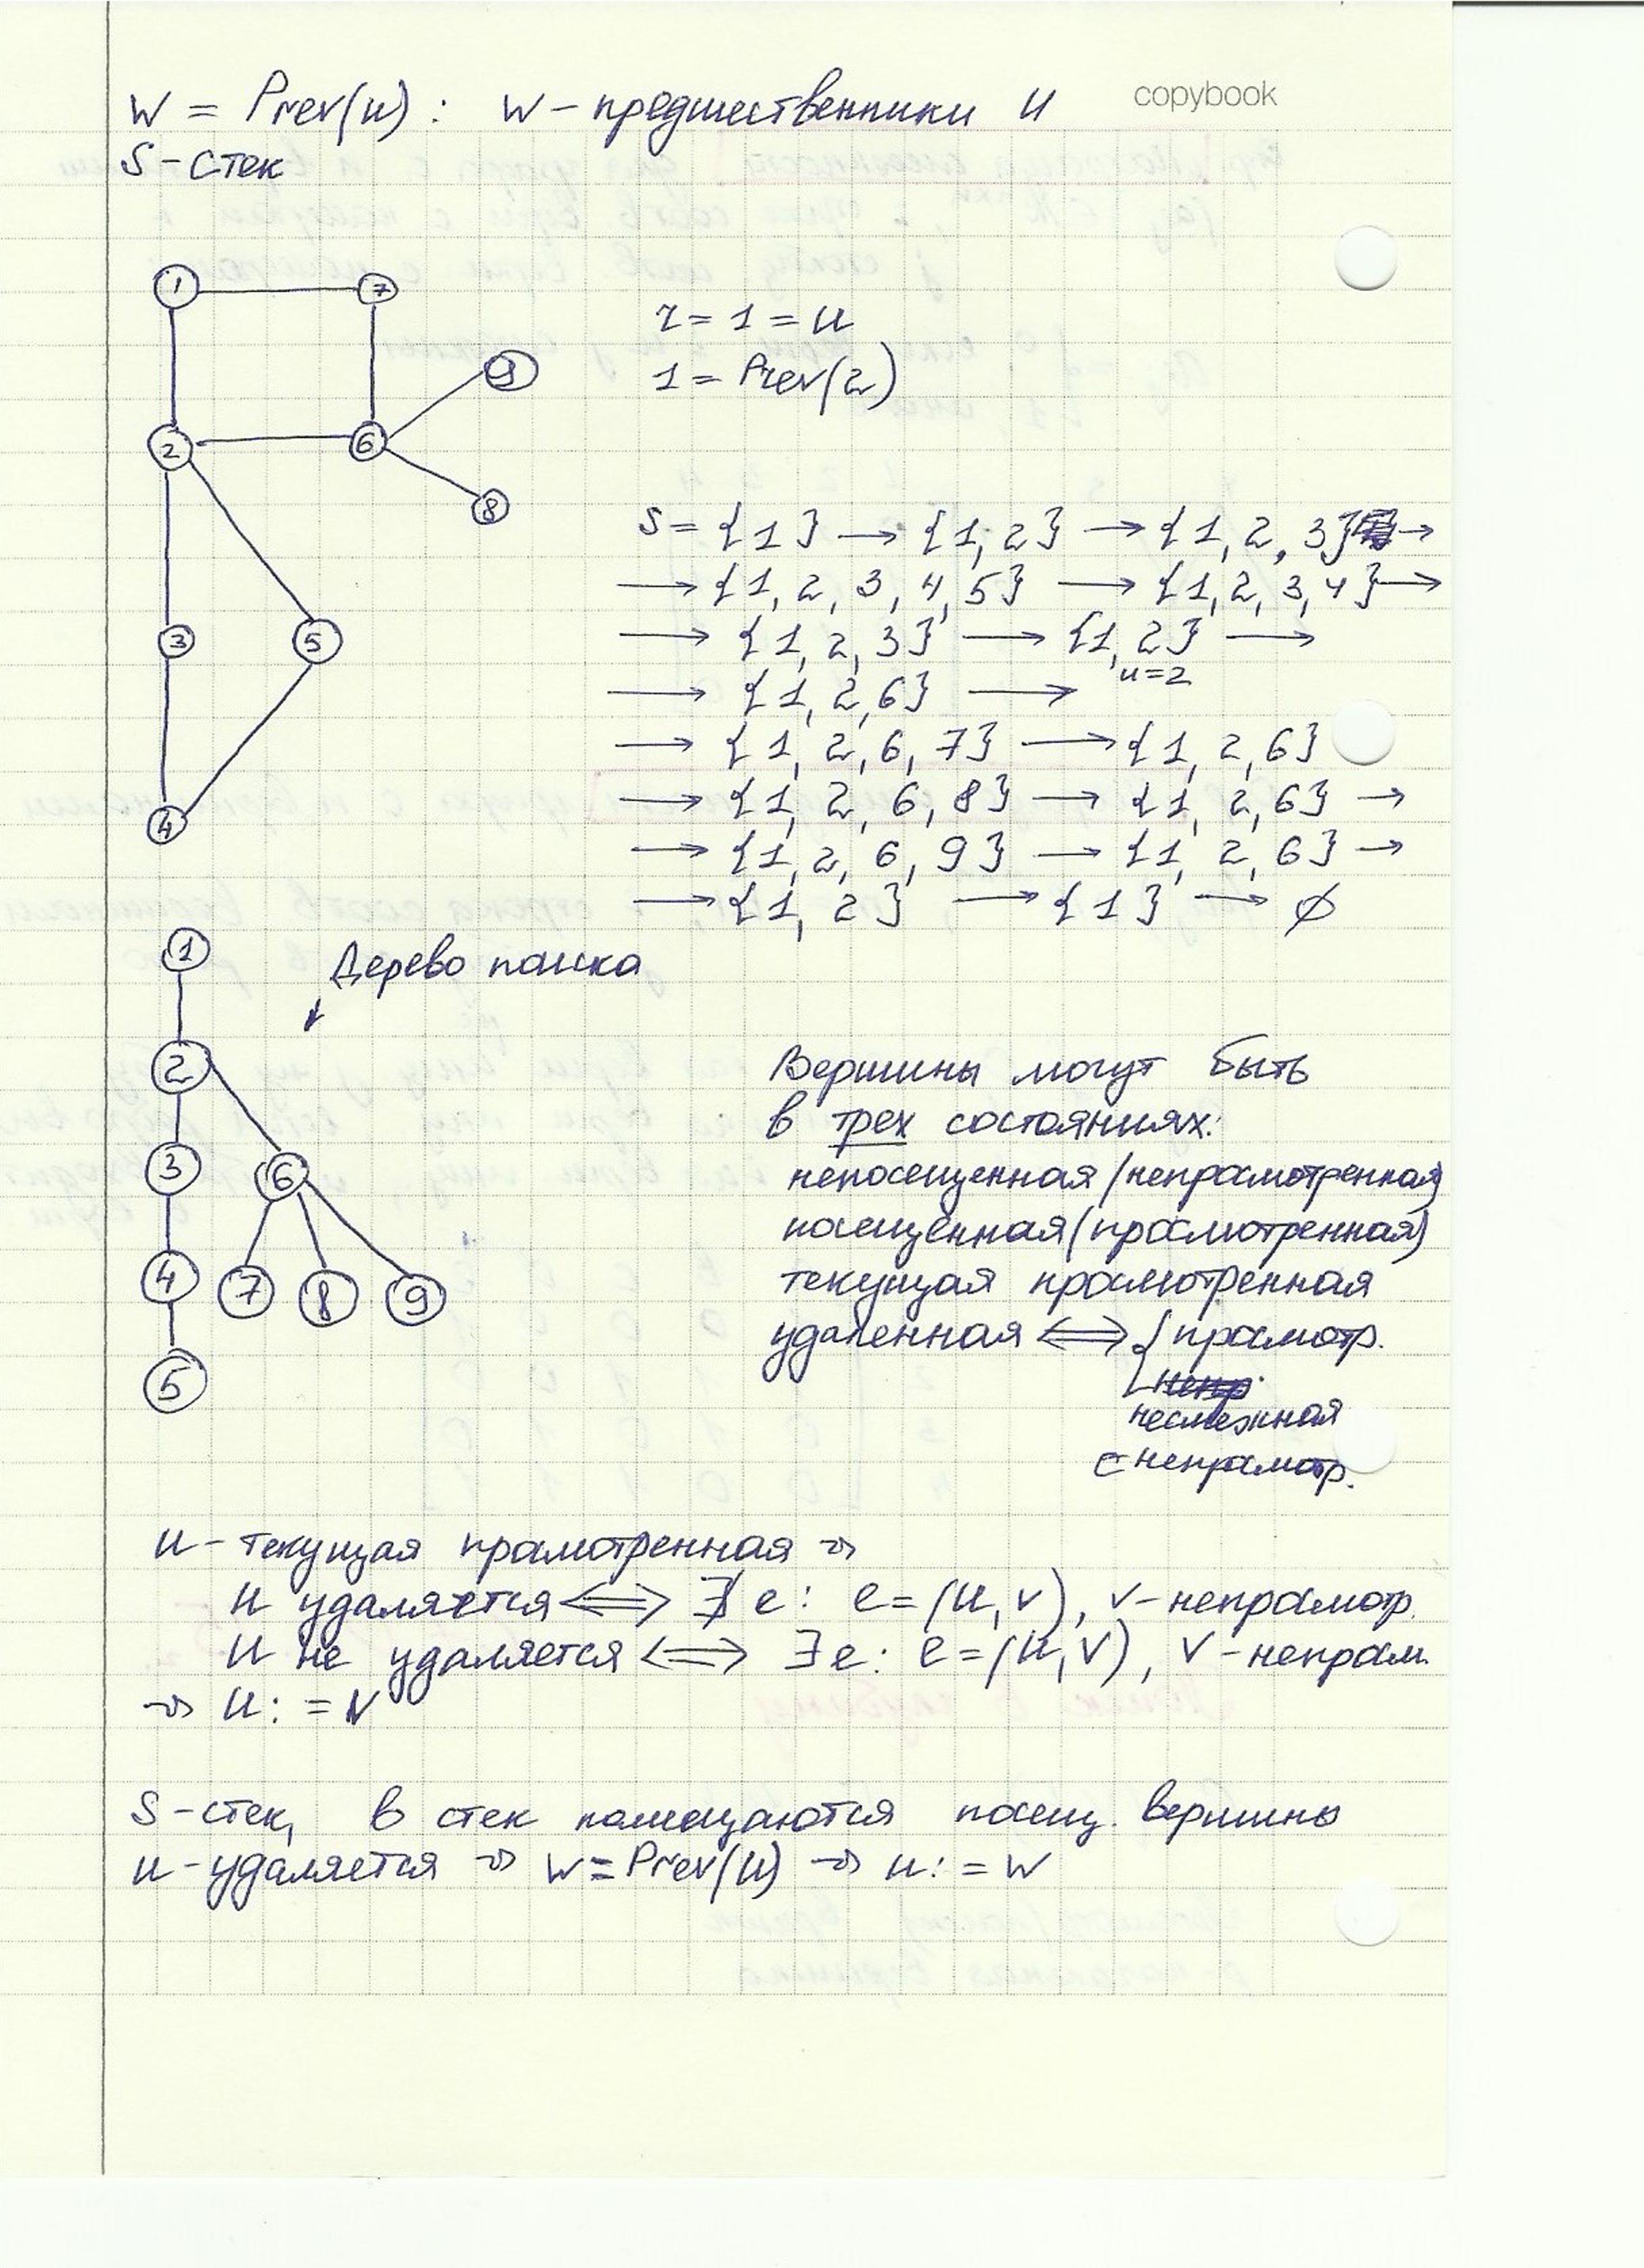 copybook
W = Prev(u) : W - предшественники u
S - стек
1 7
9
2 6
8
3 5
4
r = 1 = u
1 = Prev(2)
S = {1} → {1, 2} → {1, 2, 3} →
→ {1, 2, 3, 4, 5} → {1, 2, 3, 4} →
→ {1, 2, 3} → {1, 2} →
u=2
→ {1, 2, 6} →
→ {1, 2, 6, 7} → {1, 2, 6}
→ {1, 2, 6, 8} → {1, 2, 6} →
→ {1, 2, 6, 9} → {1, 2, 6} →
→ {1, 2} → {1} → ∅
Дерево поиска
1
2
3 6
4 7 8 9
5
Вершины могут быть
в трех состояниях:
непосещенная (непросмотренная)
посещенная (просмотренная)
текущая просмотренная
удаленная ⟺ { просмотр.
несмежная
с непросмотр.
u - текущая просмотренная ⇒
u удаляется ⟺ ∄ e : e = (u, v), v - непросмотр.
u не удаляется ⟺ ∃ e : e = (u, v), v - непросм.
⇒ u : = v
S - стек, в стек помещаются посещ. вершины
u - удаляется ⇒ w = Prev(u) ⇒ u : = w